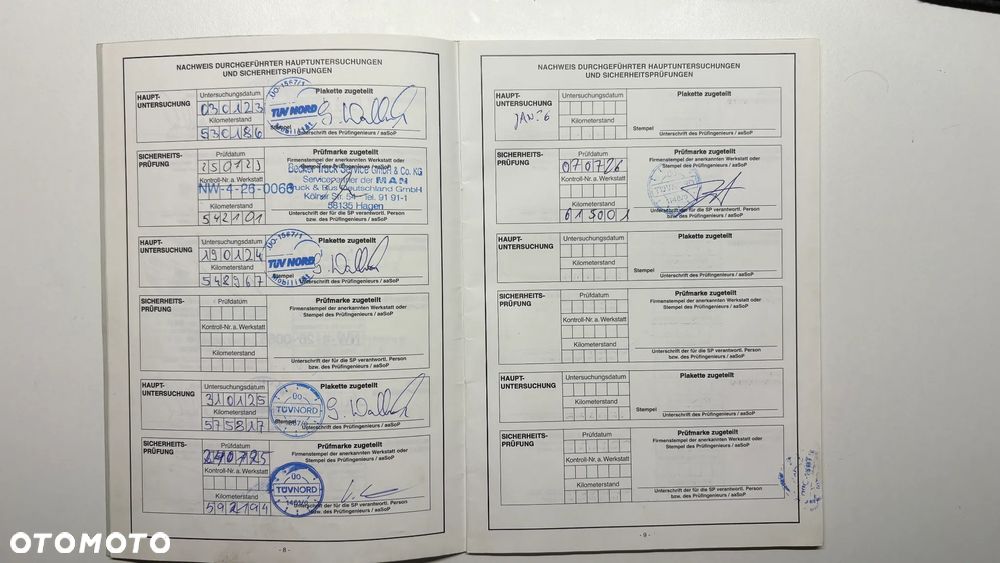 NACHWEIS DURCHGEFÜHRTER HAUPTUNTERSUCHUNGEN
UND SICHERHEITSPRÜFUNGEN
HAUPT-
UNTERSUCHUNG
Untersuchungsdatum
030123
Kilometerstand
530186
ÜO-1567/1
TÜV NORD
Mobilität
Stempel
Unterschrift des Prüfingenieurs / aaSoP
SICHERHEITS-
PRÜFUNG
Prüfdatum
250123
NW-4-26-0066
Kilometerstand
542101
Prüfmarke zugeteilt
Firmenstempel der anerkannten Werkstatt oder
Becker Truck Service GmbH & Co. KG
Servicepartner der MAN
Truck & Bus Deutschland GmbH
Kölner Str. 54 Tel. 91 91-1
58135 Hagen
Unterschrift der für die SP verantwortl. Person
bzw. des Prüfingenieurs / aaSoP
HAUPT-
UNTERSUCHUNG
Untersuchungsdatum
190124
Kilometerstand
548967
ÜO-1567/1
TÜV NORD
Mobilität
Plakette zugeteilt
Stempel
Unterschrift des Prüfingenieurs / aaSoP
SICHERHEITS-
PRÜFUNG
Prüfdatum
Kontroll-Nr. a. Werkstatt
Kilometerstand
Prüfmarke zugeteilt
Firmenstempel der anerkannten Werkstatt oder
Stempel des Prüfingenieurs / aaSoP
Unterschrift der für die SP verantwortl. Person
bzw. des Prüfingenieurs / aaSoP
HAUPT-
UNTERSUCHUNG
Untersuchungsdatum
310125
Kilometerstand
575817
ÜO
TÜV NORD
Plakette zugeteilt
Stempel
Unterschrift des Prüfingenieurs / aaSoP
SICHERHEITS-
PRÜFUNG
Prüfdatum
240725
Kontroll-Nr. a. Werkstatt
Kilometerstand
592194
ÜO
TÜV NORD
Prüfmarke zugeteilt
Firmenstempel der anerkannten Werkstatt oder
Stempel des Prüfingenieurs / aaSoP
Unterschrift der für die SP verantwortl. Person
bzw. des Prüfingenieurs / aaSoP
- 8 -
NACHWEIS DURCHGEFÜHRTER HAUPTUNTERSUCHUNGEN
UND SICHERHEITSPRÜFUNGEN
HAUPT-
UNTERSUCHUNG
JAN 6
Untersuchungsdatum
Kilometerstand
Plakette zugeteilt
Stempel
Unterschrift des Prüfingenieurs / aaSoP
SICHERHEITS-
PRÜFUNG
Prüfdatum
070726
Kontroll-Nr. a. Werkstatt
Kilometerstand
615001
TÜV NORD
Prüfmarke zugeteilt
Firmenstempel der anerkannten Werkstatt oder
Stempel des Prüfingenieurs / aaSoP
Unterschrift der für die SP verantwortl. Person
bzw. des Prüfingenieurs / aaSoP
HAUPT-
UNTERSUCHUNG
Untersuchungsdatum
Kilometerstand
Plakette zugeteilt
Stempel
Unterschrift des Prüfingenieurs / aaSoP
SICHERHEITS-
PRÜFUNG
Prüfdatum
Kontroll-Nr. a. Werkstatt
Kilometerstand
Prüfmarke zugeteilt
Firmenstempel der anerkannten Werkstatt oder
Stempel des Prüfingenieurs / aaSoP
Unterschrift der für die SP verantwortl. Person
bzw. des Prüfingenieurs / aaSoP
HAUPT-
UNTERSUCHUNG
Untersuchungsdatum
Kilometerstand
Plakette zugeteilt
Stempel
Unterschrift des Prüfingenieurs / aaSoP
SICHERHEITS-
PRÜFUNG
Prüfdatum
Kontroll-Nr. a. Werkstatt
Kilometerstand
Prüfmarke zugeteilt
Firmenstempel der anerkannten Werkstatt oder
Stempel des Prüfingenieurs / aaSoP
Unterschrift der für die SP verantwortl. Person
bzw. des Prüfingenieurs / aaSoP
- 9 -
OTOMOTO